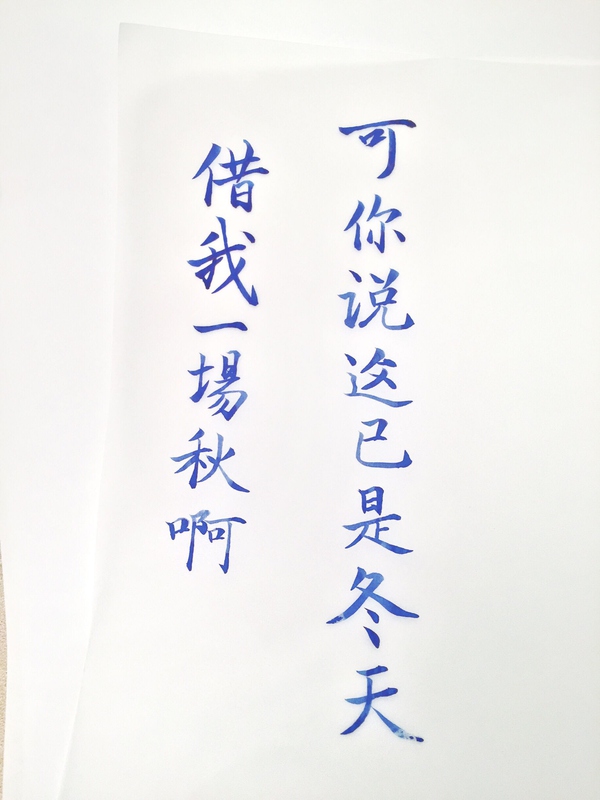 借我一場秋啊
可你说这已是冬天